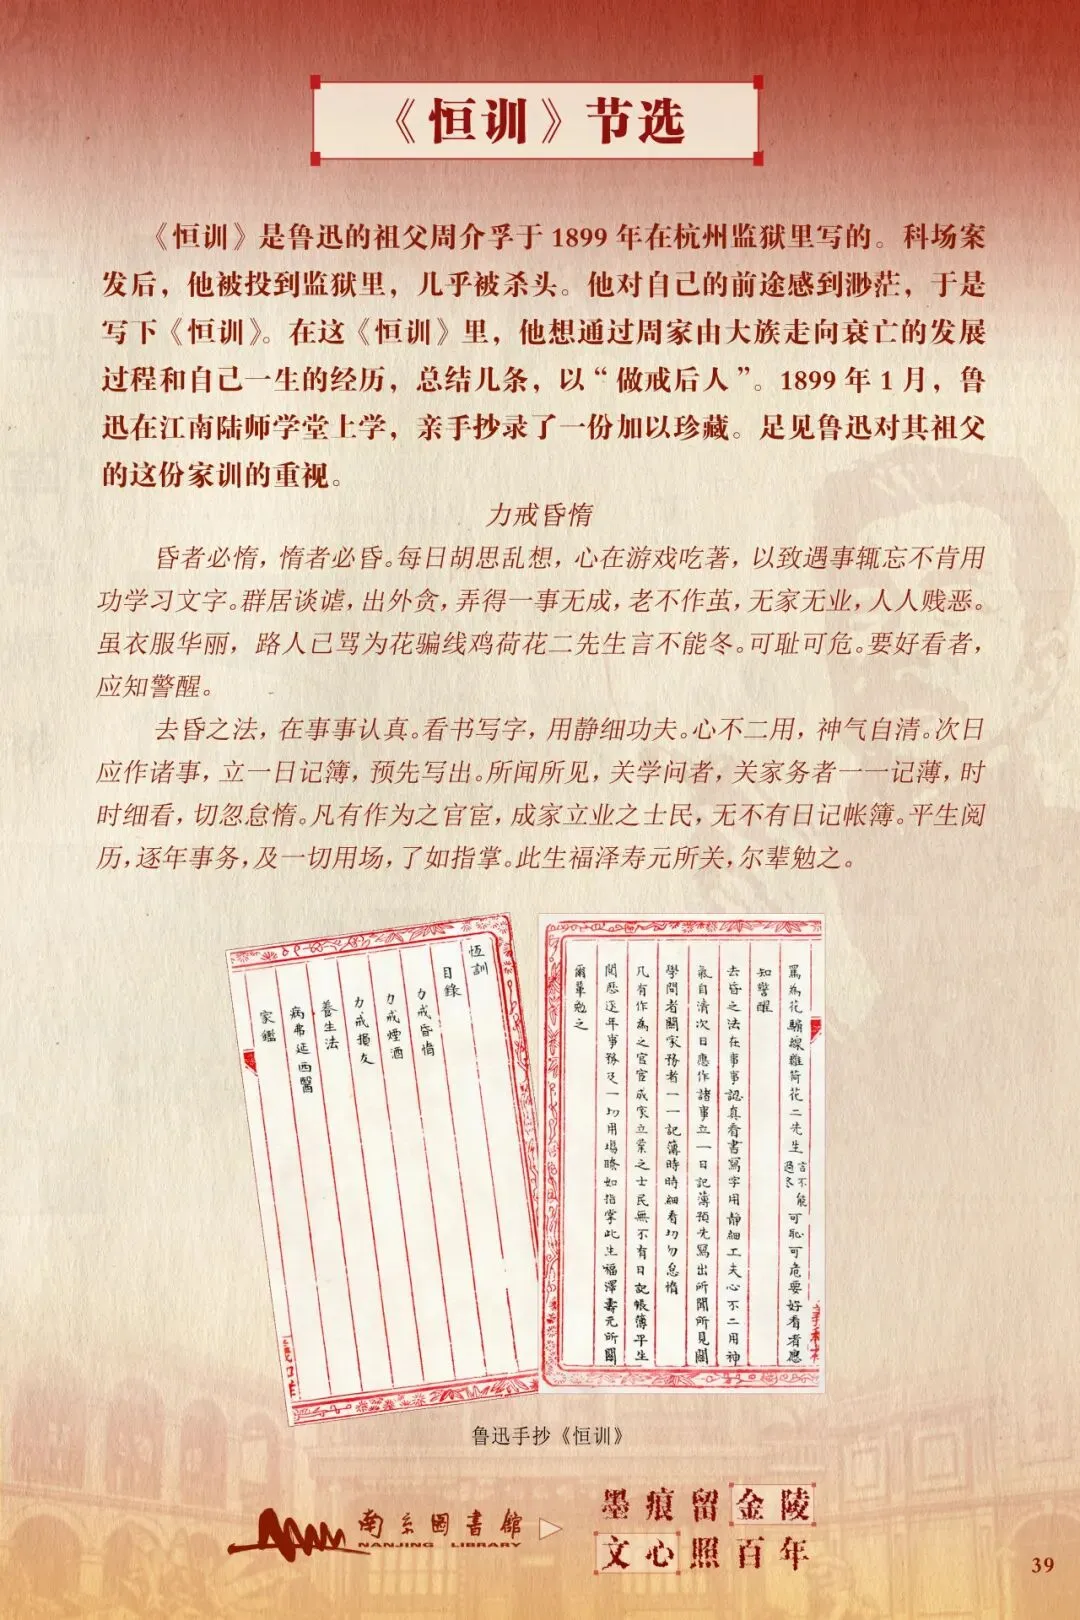 《恒训》节选
《恒训》是鲁迅的祖父周介孚于 1899 年在杭州监狱里写的。科场案
发后，他被投到监狱里，几乎被杀头。他对自己的前途感到渺茫，于是
写下《恒训》。在这《恒训》里，他想通过周家由大族走向衰亡的发展
过程和自己一生的经历，总结几条，以“做戒后人”。1899 年 1 月，鲁
迅在江南陆师学堂上学，亲手抄录了一份加以珍藏。足见鲁迅对其祖父
的这份家训的重视。
力戒昏惰
昏者必惰，惰者必昏。每日胡思乱想，心在游戏吃著，以致遇事辄忘不肯用
功学习文字。群居谈谑，出外贪，弄得一事无成，老不作茧，无家无业，人人贱恶。
虽衣服华丽，路人已骂为花骗线鸡荷花二先生言不能冬。可耻可危。要好看者，
应知警醒。
去昏之法，在事事认真。看书写字，用静细功夫。心不二用，神气自清。次日
应作诸事，立一日记簿，预先写出。所闻所见，关学问者，关家务者一一记薄，时
时细看，切忽怠惰。凡有作为之官宦，成家立业之士民，无不有日记帐簿。平生阅
历，逐年事务，及一切用场，了如指掌。此生福泽寿元所关，尔辈勉之。
恆訓
目錄
力戒昏惰
力戒煙酒
力戒損友
養生法
病弗延西醫
家鑑
罵為花騙線雞荷花二先生言不能過冬可恥可危要好看者應
知警醒
去昏之法在事事認真看書寫字用靜細工夫心不二用神
氣自清次日應作諸事立一日記薄預先寫出所聞所見關
學問者關家務者一一記薄時時細看切勿怠惰
凡有作為之官宦成家立業之士民無不有日記帳簿平生
閱歷逐年事務及一切用場瞭如指掌此生福澤壽元所關
爾輩勉之
鲁迅手抄《恒训》
南京圖書館
NANJING LIBRARY
墨痕留金陵
文心照百年
39